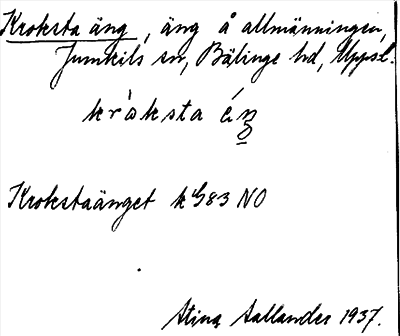 Kroksta äng, äng å allmänningen,
Jumkils sn, Bälinge hd, Uppsl.
kròksta éŋ
Krokstaänget k G83 NO
Stina Sallander 1937.